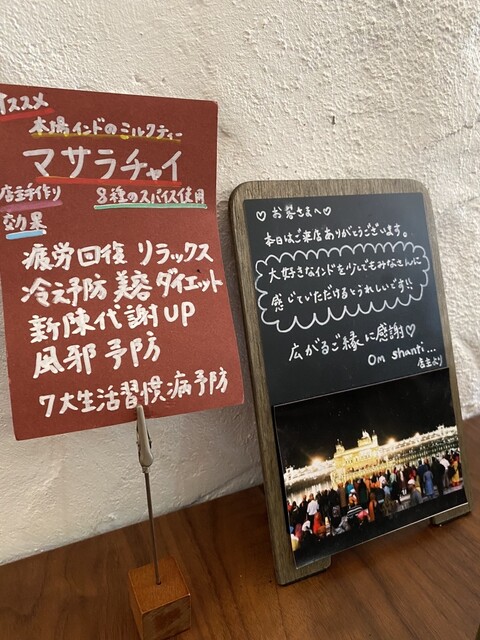 オススメ
本場インドのミルクティー
マサラチャイ
店主手作り 8種のスパイス使用
効果
疲労回復 リラックス
冷え予防 美容 ダイエット
新陳代謝UP
風邪予防
7大生活習慣病予防
♡お客さまへ♡
本日はご来店ありがとうございます。
大好きなインドを少しでもみなさんに
感じていただけるとうれしいです!!
広がるご縁に感謝♡
Om shanti...
店主より